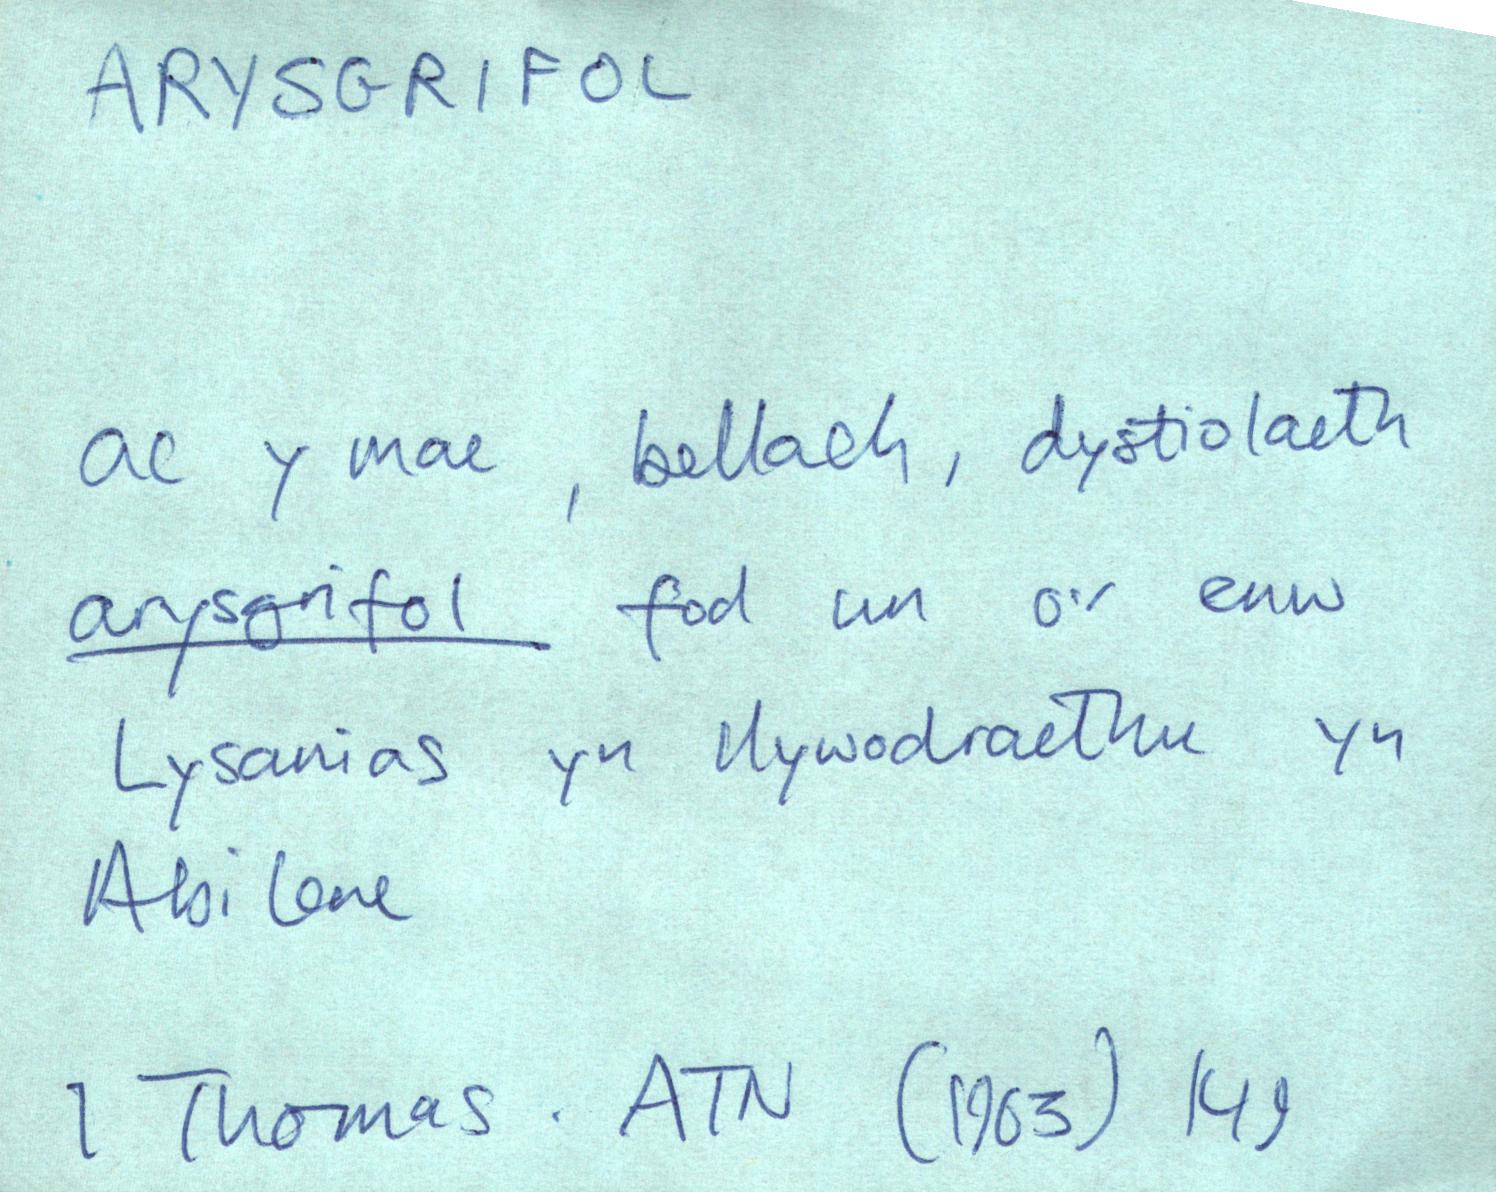 ARYSGRIFOL
ac y mae, bellach, dystiolaeth
arysgrifol fod un o'r enw
Lysanias yn llywodraethu yn
Abilene
I Thomas. ATN (1963) 149